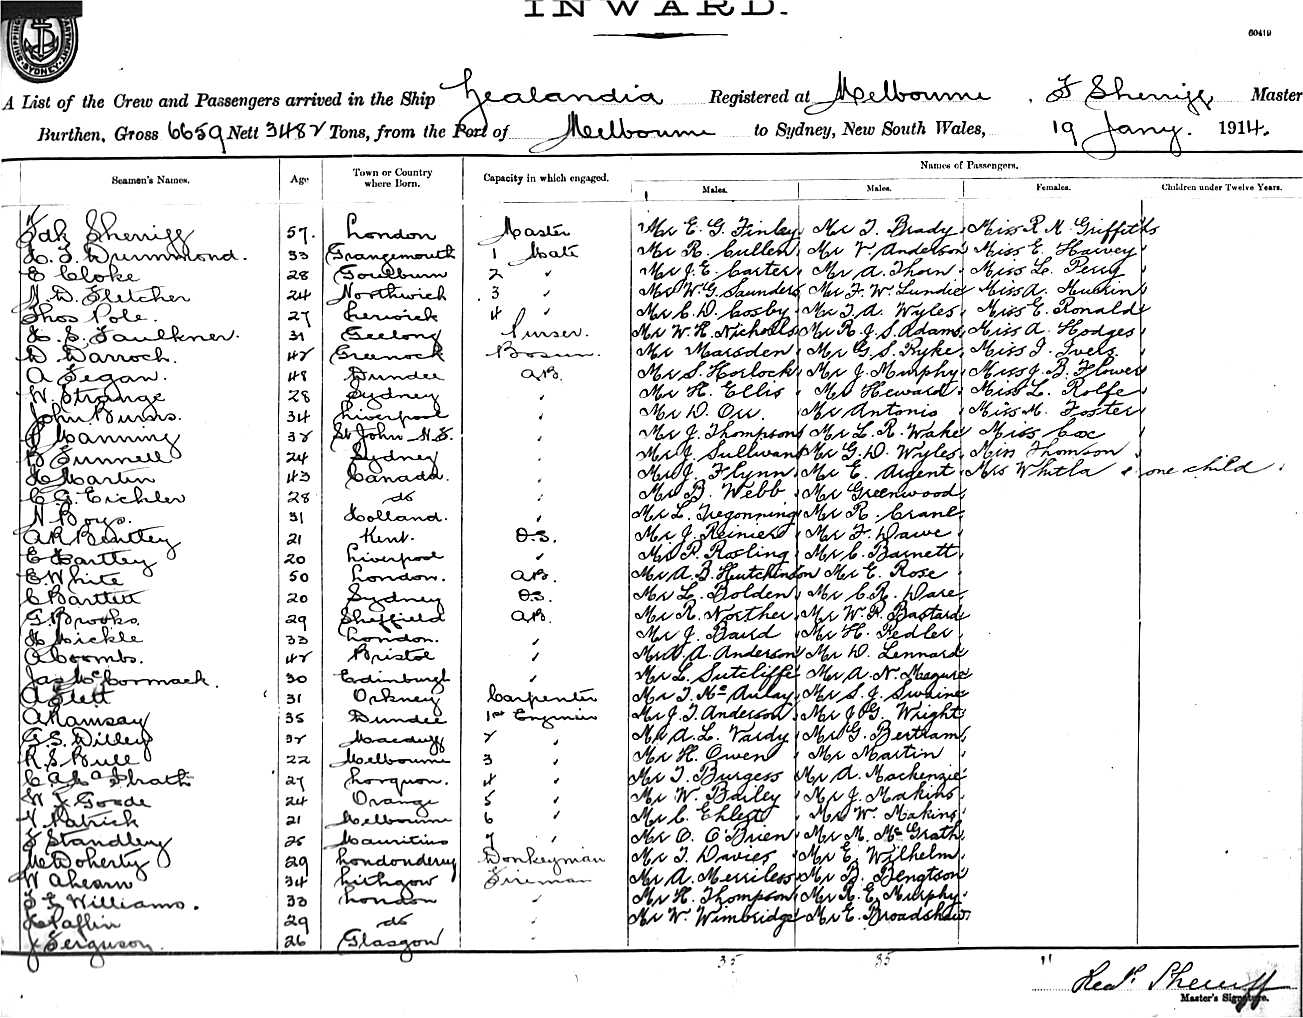 INWARD.
SHIPPING SYDNEY
60419
A List of the Crew and Passengers arrived in the Ship Zealandia Registered at Melbourne, F Sherriff Master
Burthen, Gross 6659 Nett 3482 Tons, from the Port of Melbourne to Sydney, New South Wales, 19 Jany. 1914.
Names of Passengers.
Seamen's Names. Age Town or Country where Born. Capacity in which engaged. Males. Males. Females. Children under Twelve Years.
Sherriff 57. London Master Mr E. G. Finlay Mr T. Brady Miss R M Griffiths
Drummond. 33 Grangemouth 1 Mate Mr R. Cullen Mr V. Anderson Miss E. Harvey
E Cloke 28 Goulburn 2 " Mr J. E. Carter Mr A. Thorn. Miss L. Perry
N. D. Fletcher 24 Northwick 3 " Mr W. G. Saunders Mr F. W. Lundie Miss A.
Thos Pole. 27 Lerwick 4 " Mr C. D. Cosby Mr T. A. Wyles Miss E. Ronalds
H. S. Faulkner. 31 Geelong Purser. Mr W. H. Nicholls Mr R. J. S. Adams Miss A. Hodges
D. Darroch. 42 Greenock Bosun. Mr Marsden Mr G. S. Pyke Miss J. Ivers
A Fegan. 48 Dundee A.B. Mr S. Horlock Mr J. Murphy Miss J. B. Flower
W. Strange 28 Sydney " Mr H. Ellis Mr Heward Miss L. Rolfe
John Burns. 34 Liverpool " Mr D. Orr. Mr Antonio Miss M. Foster
Manning 32 St John N.S. " Mr J. Thompson Mr L. R. Wake Miss Cox
B Funnell 24 Sydney " Mr J. Sullivan Mr G. D. Wyles Miss Thomson
H Martin 43 Canada. " Mr J. Flynn Mr E. Argent Mrs Whitla & one child
C. G. Eichler 28 do " Mr B. Webb Mr Greenwood
N Boys. 31 Holland. " Mr L. Tregonning Mr R. Crane
A R Bentley 21 Kent. O.S. Mr J. Reiniers Mr F. Dawe
E Hartley 20 Liverpool " Mr P. Rosling Mr C. Barnett
E. White 50 London. A.B. Mr A. B. Hutchinson Mr E. Rose
C Bartlett 20 Sydney O.S. Mr L. Bolden Mr C. R. Dare
G. Brooks. 29 Sheffield A.B. Mr R. Norther Mr W. R. Bastard
H Mickle 33 London. " Mr J. Baird Mr H. Pedler
A Coombs. 42 Bristol " Mr A. A. Anderson Mr D. Lennard
Jas McCormack. 30 Edinburgh " Mr L. Sutcliffe Mr A. N. Maguire
A Flett 31 Orkney Carpenter Mr T. McAulay Mr S. J. Swaine
A Ramsay 35 Dundee 1st Engineer Mr J. T. Anderson Mr J G. Wright
G. S. Dilley 32 Macduff 2 " Mr A. L. Vardy Mr G. Bertram
R. S. Bull 22 Melbourne 3 " Mr H. Owen Mr Martin
27 4 " Mr T. Burgess Mr A. Mackenzie
Goode 24 Orange 5 " Mr W. Bailey Mr J. Makins
Patrick 21 Melbourne 6 " Mr C. Ehlest Mr W. Makins
Standley 25 Mauritius 7 " Mr O. O'Brien Mr M. McGrath
M. Doherty 29 Londonderry Donkeyman Mr T. Davies Mr E. Wilhelm
W Ahearn 34 Lithgow Fireman Mr A. Merriless Mr B. Bengtson
Williams. 33 London " Mr H. Thompson Mr R. E. Murphy
Laflin 29 do " Mr W. Wimbridge Mr E. Broadshaw
J Ferguson. 26 Glasgow "
35 35 11
Sherriff
Master's Signature.